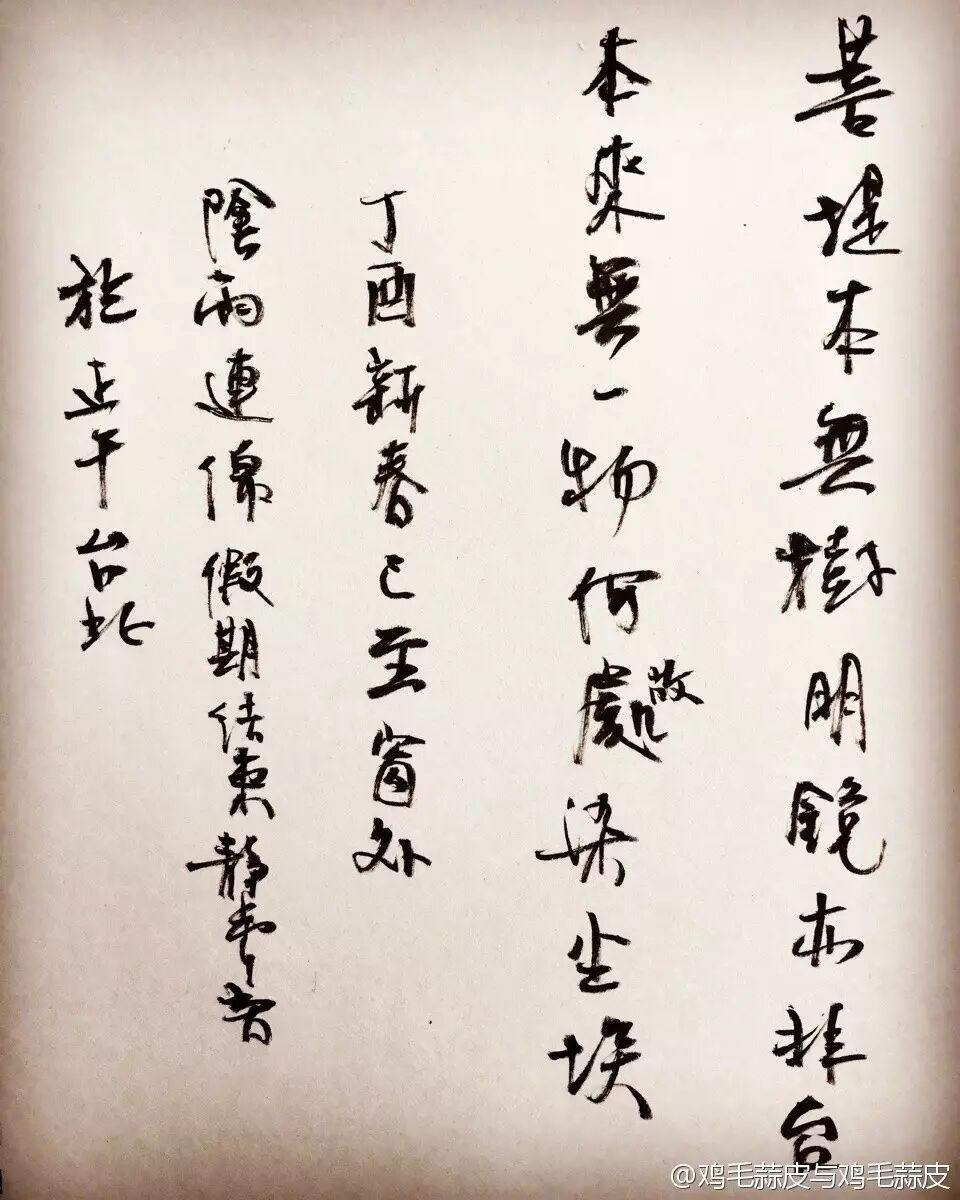 菩提本無樹明鏡亦非台
本來無一物何處故染尘埃
丁酉新春已至窗外
陰雨連綿假期結束靜
於正午台北
@鸡毛蒜皮与鸡毛蒜皮